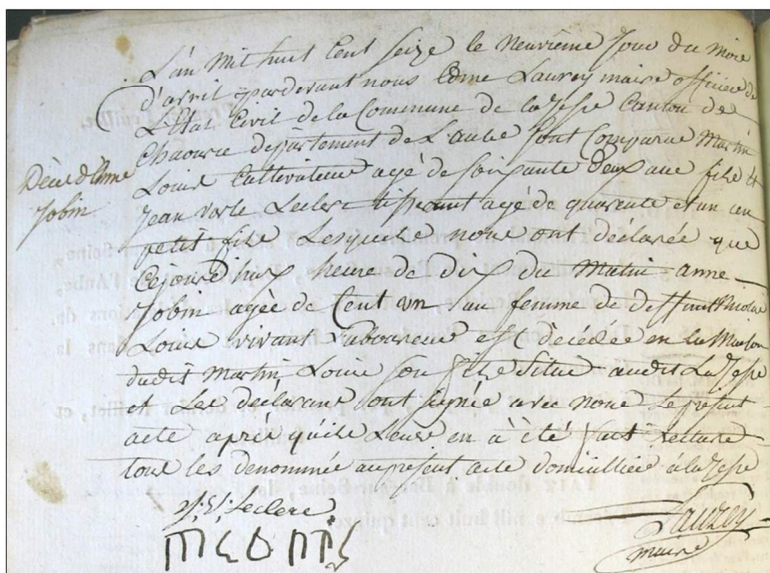 L'an mil huit Cent seize le neuvième Jour du mois
d'avril pardevant nous Edme Lauzey maire officier de
L'état Civil de la Commune de la Jesse Canton de
Chaource département de L'aube sont Comparus Martin
Décès d'Anne
Jobin
Louis Cultivateur agé de soixante deux ans fils et
Jean Leclerc tisserant agé de quarente et un an
petit fils Lesquels nous ont déclarée que
Cejourd'huy heure de dix du Matin anne
Jobin agée de Cent un an femme de deffunt Nicolas
Louis vivant Laboureur est décédée en la Maison
dudit Martin Louis son fils situé audit La Jesse
et Les déclarans sont signée avec nous Le present
acte apres qu'ils Leurs en à été fait Lecture
tous les denommée au présent acte domicilliée à la Jesse
Leclerc
Lauzey
maire